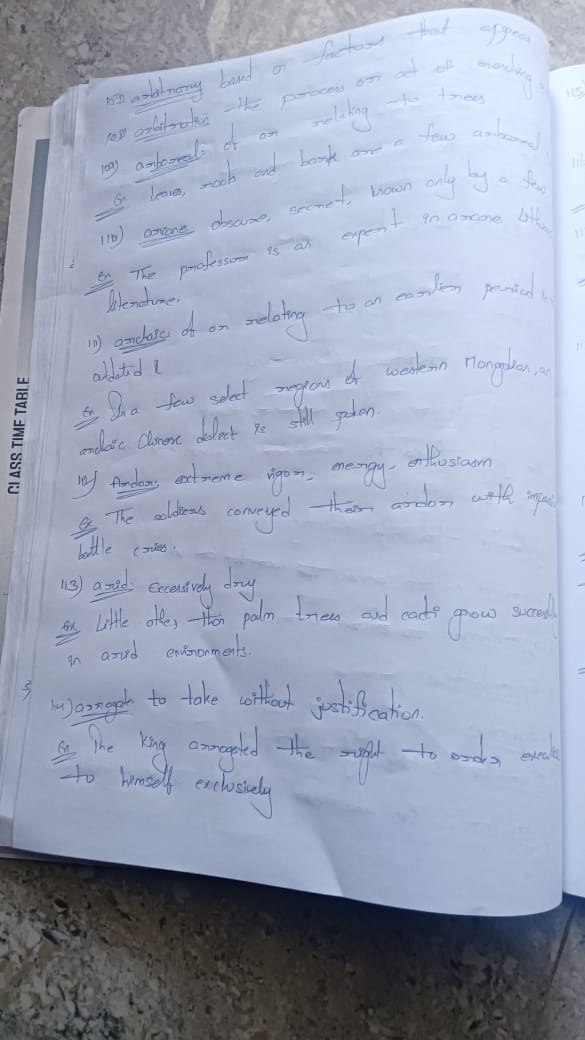 107) arbitrary based on factors that appear
108) arbitration the process or act of
109) arboreal: of or relating to trees
Ex leaves, roots and bark are a few arboreal
110) arcane obscure, secret, known only by a few
Ex The professor is an expert in arcane
literature.
111) archaic of or relating to an earlier period in
Ex In a few select regions of western Mongolian, an
archaic Chinese dialect is still spoken.
112) Ardor: extreme vigor, energy, enthusiasm
Ex The soldiers conveyed their ardor with
battle cries.
113) arid: Excessively dry
Ex Little other than palm trees and cacti grow
in arid environments.
114) arrogate to take without justification.
Ex The King arrogated the right to order
to himself exclusively
CLASS TIME TABLE
115